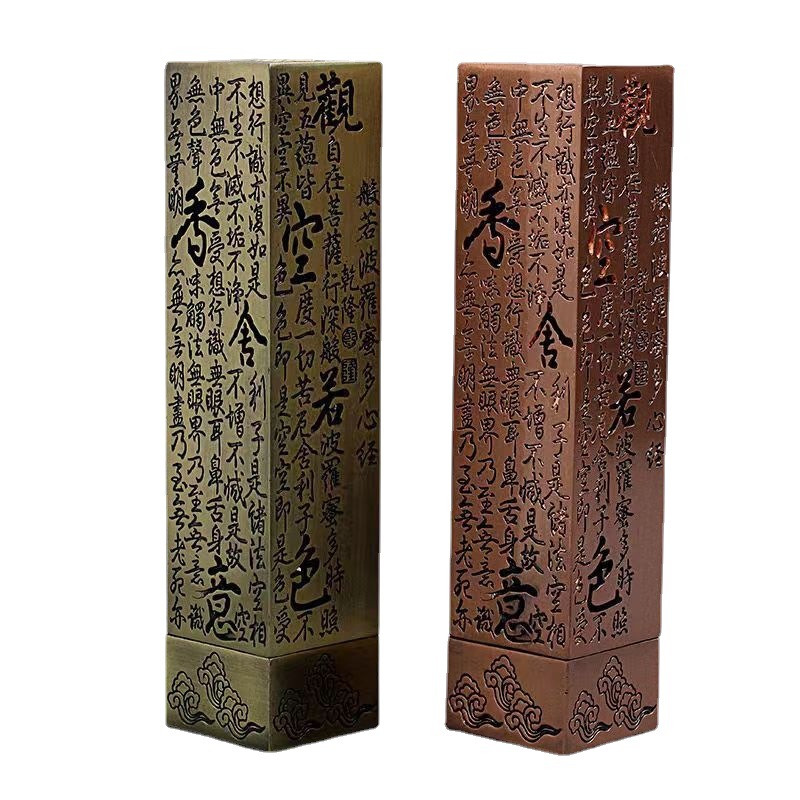 般若波羅蜜多心经
乾隆
觀自在菩薩行深般若波羅蜜多時照
見五蘊皆空度一切苦厄舍利子色不
異空空不異色色即是空空即是色受
想行識亦復如是舍利子是諸法空相
不生不滅不垢不淨不增不減是故空
中無色無受想行識無眼耳鼻舌身意
無色聲香味觸法無眼界乃至無意識
界無無明亦無無明盡乃至無老死亦
般若波羅蜜多心经
乾隆
觀自在菩薩行深般若波羅蜜多時照
見五蘊皆空度一切苦厄舍利子色不
異空空不異色色即是空空即是色受
想行識亦復如是舍利子是諸法空相
不生不滅不垢不淨不增不減是故空
中無色無受想行識無眼耳鼻舌身意
無色聲香味觸法無眼界乃至無意識
界無無明亦無無明盡乃至無老死亦